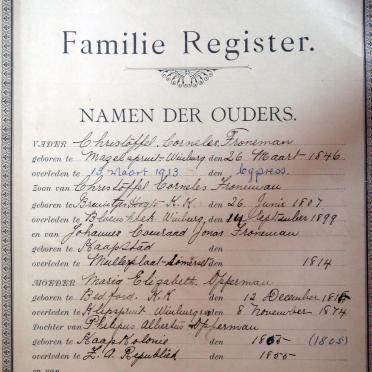 Familie Register.
NAMEN DER OUDERS.
VADER Christoffel Cornelis Froneman
geboren te Mazelspruit-Winburg den 26 Maart 1846
overleden te 13 Maart 1913 den Cypress.
Zoon van Christoffel Cornelis Froneman
geboren te K.K den 26 Junie 1807
overleden te Winburg den 14 September 1899
en van Johannes Coenraad Jonas Froneman
geboren te Kaapstad den
overleden te Somerset den 1814
MOEDER Maria Elizabeth Opperman
geboren te Bedford. K.K den 12 December
overleden te Klipspruit Winburg den 8 November 1874
Dochter van Philipus Albertus Opperman
geboren te Kaap Kolonie den (1805)
overleden te Z. A. Republiek den
en van